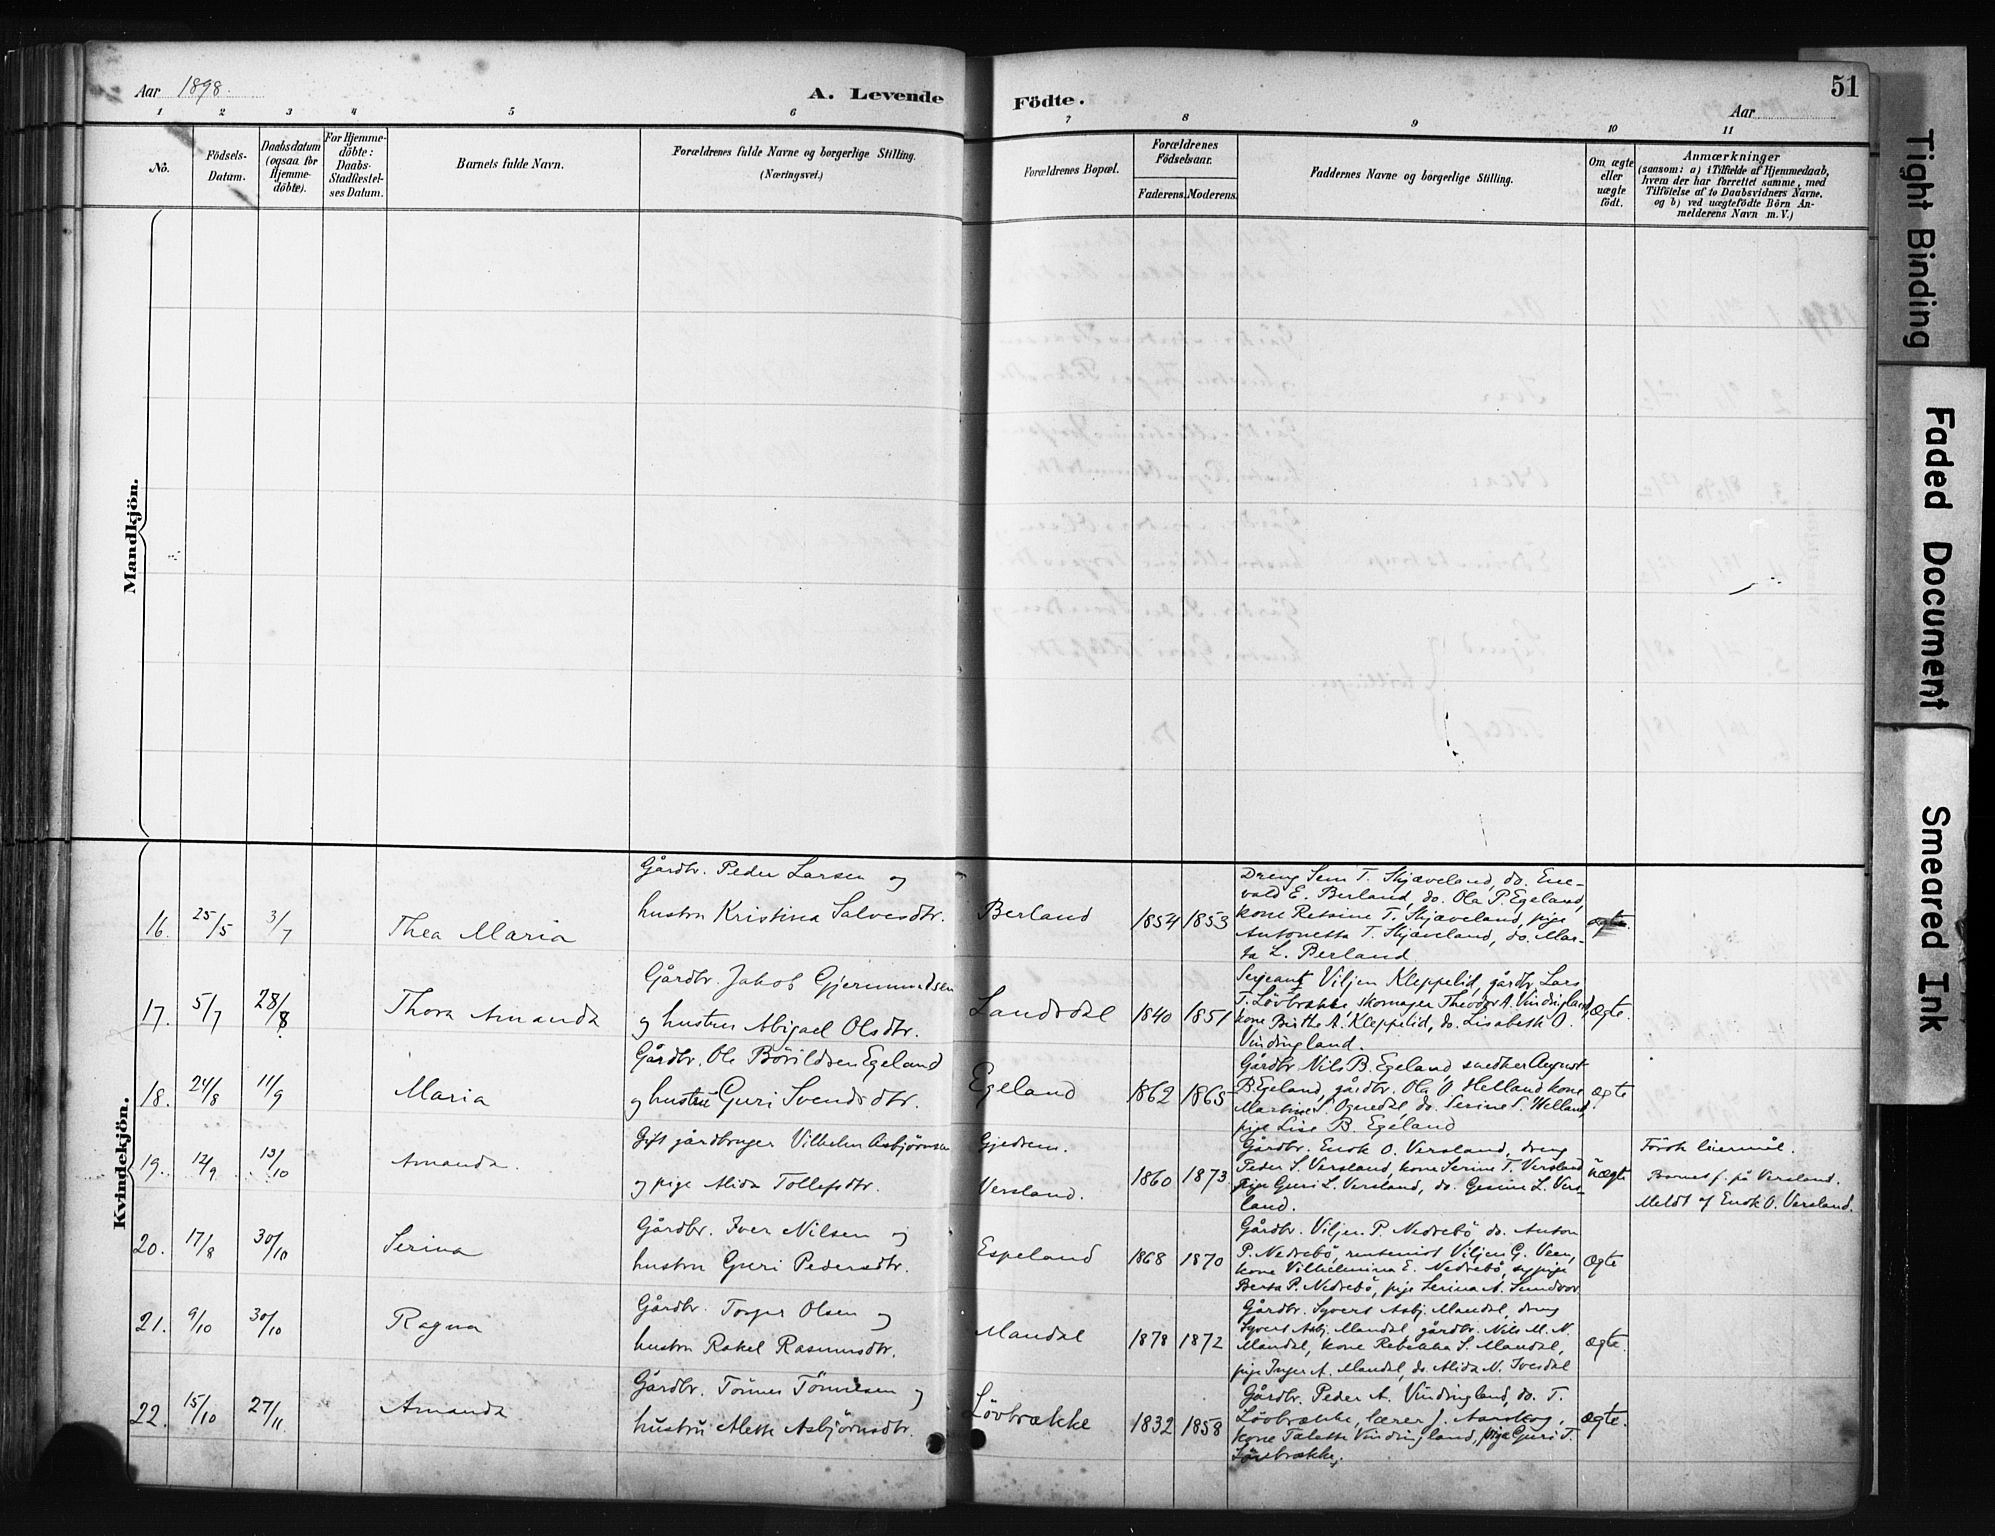 Aar 1898.
A. Levende
Födte.
51
Aar
1 2 3 4 5 6
7 8 9 10 11
No.
Födsels-
Datum.
Daabsdatum
(ogsaa for
Hjemme-
döbte).
For Hjemme-
döbte:
Daabs-
Stadfæstel-
ses Datum.
Barnets fulde Navn.
Forældrenes fulde Navne og borgerlige Stilling.
(Næringsvei.)
Forældrenes Bopæl.
Forældrenes
Födselsaar.
Faderens. Moderens.
Faddernes Navne og borgerlige Stilling.
Om ægte
eller
uægte
födt.
Anmærkninger
(saasom: a) i Tilfælde af Hjemmedaab,
hvem der har forrettet samme, med
Tilföielse af to Daabsvidners Navne.
og b) ved uægtefödte Börn An-
melderens Navn m. V.)
Mandkjön.
Kvindekjön.
16. 25/5 3/7 Thea Maria
Gårdbr. Peder Larsen og
hustru Kristina Salvesdtr.
Berland 1854 1853
Dreng Sem T. Skjæveland, do. Ene-
vald E. Berland, do. Ola P. Egeland,
kone Retsine T. Skjæveland, pige
Antonetta T. Skjæveland, do. Mar-
ta L. Berland
ægte.
17. 5/7 28/8 Thora Amanda
Gårdbr. Jakob Gjermundsen
og hustru Abigael Olsdtr.
Landsdal 1840 1851
Sergeant Viljen Kleppelid, gårdbr. Lars
T. Lövbrække skomager Theodor A. Vindingland,
kone Birthe A. Kleppelid, do. Lisabeth O.
Vindingland.
Ægte.
18. 24/8 11/9 Maria
Gårdbr. Ole Börildsen Egeland
og hustru Guri Svendsdtr.
Egeland 1862 1865
Gårdbr. Nils B. Egeland snedker August
B. Egeland, gårdbr. Ola O. Helland kone
Martine S. Ognedal, do. Serine S. Helland,
pige Lise B. Egeland
ægte
19. 12/9 13/10 Amanda.
Gift gårdbruger Vilhelm Asbjørnsen
og pige Alida Tollefsdtr.
Gjedrem.
Versland. 1860 1873.
Gårdbr. Enok O. Versland, dreng
Peder S. Versland, kone Serine T. Versland
pige Guri L. Versland, do. Gesine L. Vers-
land.
uægte
Förste leiermål.
Barnet f. på Versland.
Meldt af Enok O. Versland.
20. 17/8 30/10 Serina
Gårdbr. Iver Nilsen og
hustru Guri Pedersdtr.
Espeland 1868 1870
Gårdbr. Viljen P. Nedrebö, do. Anton
P. Nedrebö, rentenist Viljen G. Veen,
kone Vilhelmina E. Nedrebö, sypige
Berta P. Nedrebö, pige Serina A. Sundvor
Ægte
21. 9/10 30/10 Ragna
Gårdbr. Torger Olsen og
hustru Rakel Rasmusdtr.
Mandal 1878 1872
Gårdbr. Syvert Asbj. Mandal, dreng
Syvert Asbj. Mandal, gårdbr. Nils M. N.
Mandal, kone Rebekka S. Mandal,
pige Inger A. Mandal, do. Alida N. Ivesdal
Ægte.
22. 15/10 27/11 Amanda
Gårdbr. Tönnes Tönnesen og
hustru Alette Asbjörnsdtr.
Lövbrække 1832 1858
Gårdbr. Peder A. Vindingland, do. T.
Lövbrække, lærer J. Aarskog,
kone Talette Vindingland, pige Guri T.
Lövbrække.
Ægte.
Tight Binding
Faded Document
Smeared Ink